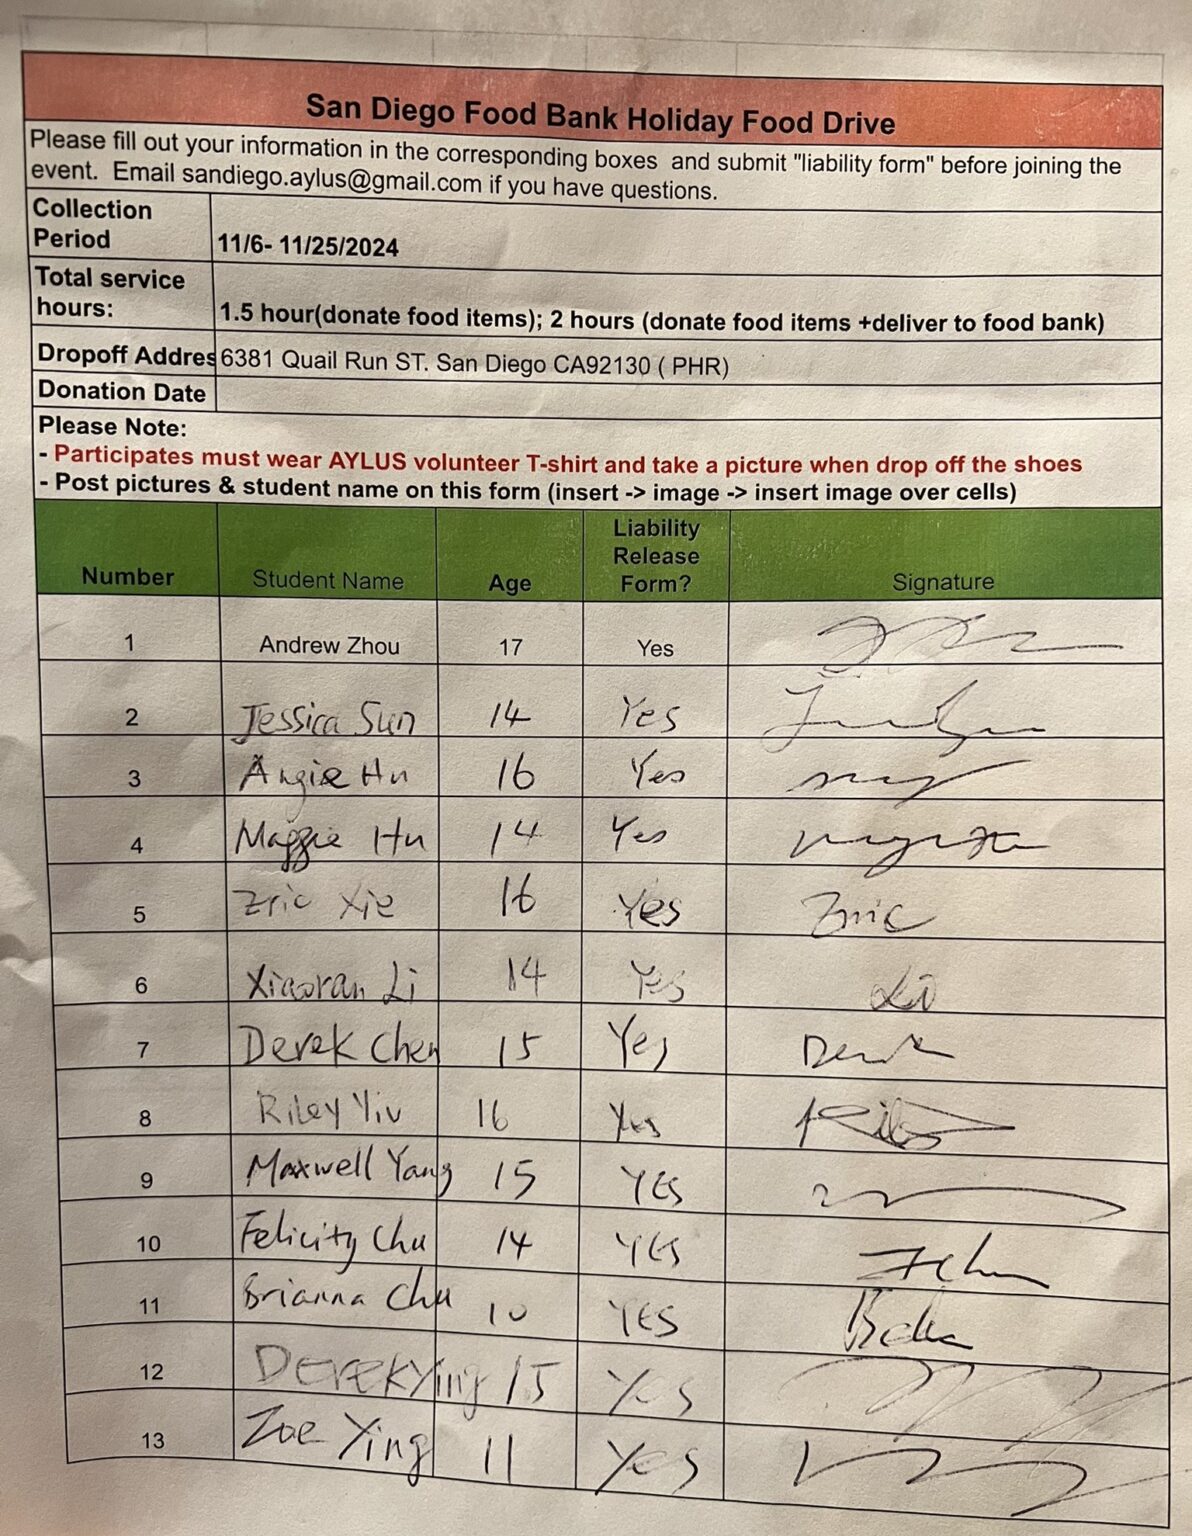 San Diego Food Bank Holiday Food Drive
Please fill out your information in the corresponding boxes and submit "liability form" before joining the
event. Email sandiego.aylus@gmail.com if you have questions.
Collection
Period 11/6- 11/25/2024
Total service
hours: 1.5 hour(donate food items); 2 hours (donate food items +deliver to food bank)
Dropoff Addres 6381 Quail Run ST. San Diego CA92130 ( PHR)
Donation Date
Please Note:
- Participates must wear AYLUS volunteer T-shirt and take a picture when drop off the shoes
- Post pictures & student name on this form (insert -> image -> insert image over cells)
Number Student Name Age Liability Release Form? Signature
1 Andrew Zhou 17 Yes
2 Jessica Sun 14 Yes
3 Angie Hu 16 Yes
4 Maggie Hu 14 Yes
5 Eric Xie 16 Yes Eric
6 Xiaoran Li 14 Yes Li
7 Derek Chen 15 Yes Derek
8 Riley Yiu 16 Yes
9 Maxwell Yang 15 YES
10 Felicity Chu 14 YES
11 Brianna Chu 10 YES
12 DEREK Ying 15 Yes
13 Zoe Ying 11 Yes